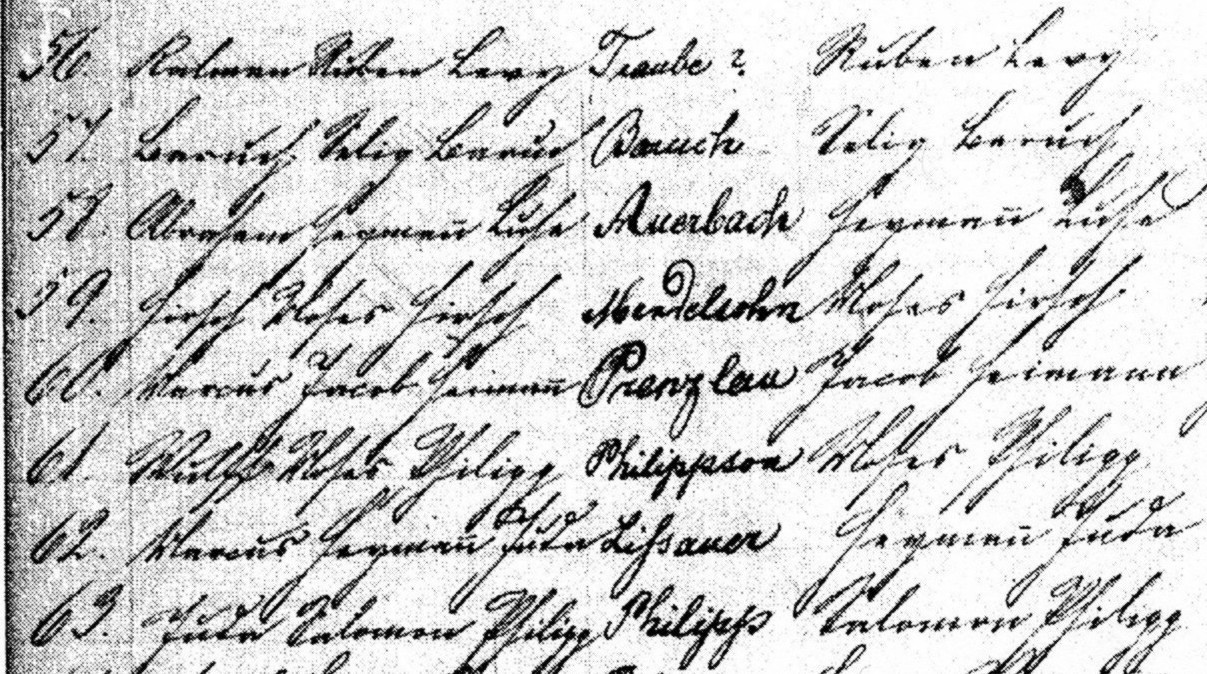 56. Kalman Ruben Levy Traube ? Ruben Levy
57. Baruch Selig Baruch Baruch Selig Baruch
58. Abraham Heymañ Auerbach Heymañ
59. Hirsch Moses Hirsch Mendelsohn Moses Hirsch
60. Marcus Jacob Heimañ Prenzlau Jacob Heimann
61. Wulff Moses Philipp Philippson Moses Philipp
62. Marcus Heymañ Juda Lissauer Heymañ Juda
63. Juda Salomon Philipp Philipp Salomon Philipp